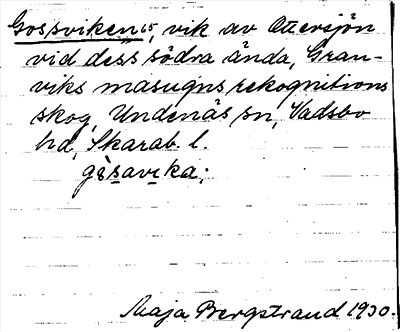 Gossviken 65, vik av Ottersjön
vid dess södra ända, Gran-
viks masugns rekognitions
skog, Undenäs sn, Vadsbo
hd, Skarab. l.
gɵ̀savɩka;
Maja Bergstrand 1930.